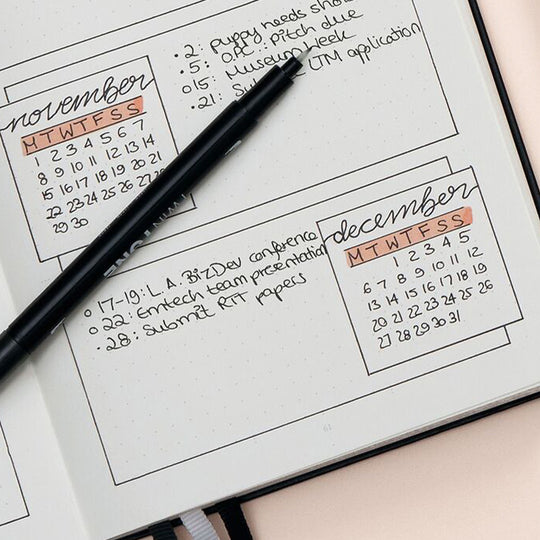 • 2: puppy needs
• 5: pitch due
o 15: Museum Week
• 21: LTM application
november
M T W T F S S
1 2 3 4 5 6 7
8 9 10 11 12 13 14
15 16 17 18 19 20 21
22 23 24 25 26 27
29 30
december
M T W T F S S
1 2 3 4 5
6 7 8 9 10 11 12
13 14 15 16 17 18 19
20 21 22 23 24 25 26
27 28 29 30 31
o 17-19: L.A. BizDev conference
o 22: Emtech team presentation
• 28: Submit RIT papers
61